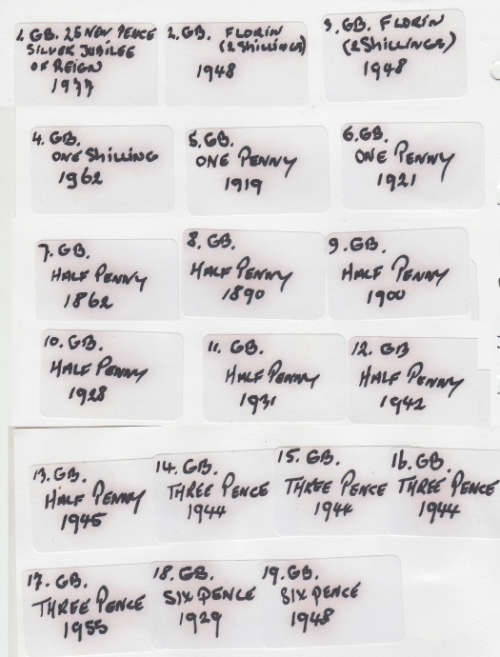 1. GB. 25 NEW PENCE
SILVER JUBILEE
OF REIGN
1977
2. GB. FLORIN
(2 SHILLINGS)
1948
3. GB. FLORIN
(2 SHILLINGS)
1948
4. GB.
ONE SHILLING
1962
5. GB.
ONE PENNY
1919
6. GB.
ONE PENNY
1921
7. GB.
HALF PENNY
1862
8. GB.
HALF PENNY
1890
9. GB.
HALF PENNY
1900
10. GB.
HALF PENNY
1928
11. GB.
HALF PENNY
1931
12. GB
HALF PENNY
1942
13. GB.
HALF PENNY
1945
14. GB.
THREE PENCE
1944
15. GB.
THREE PENCE
1944
16. GB.
THREE PENCE
1944
17. GB.
THREE PENCE
1955
18. GB.
SIX PENCE
1929
19. GB.
SIX PENCE
1948